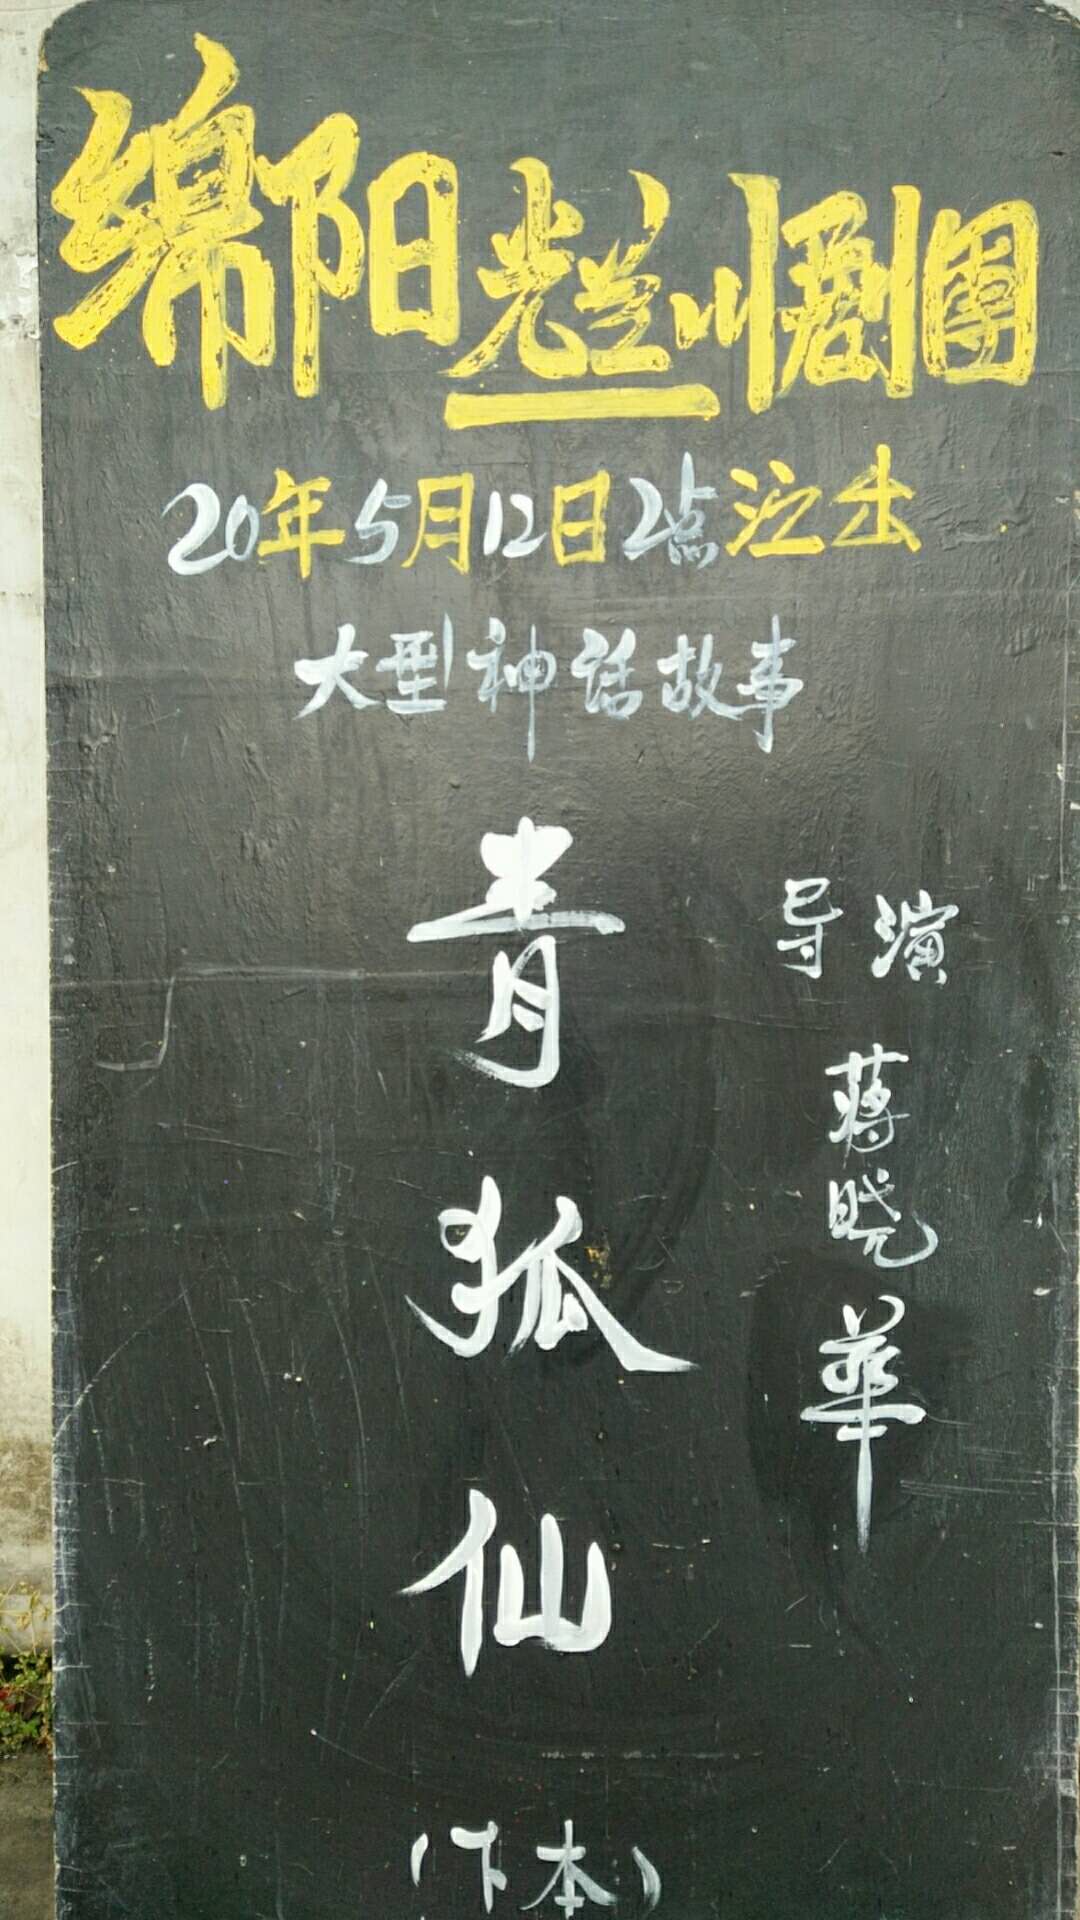 绵阳光兰川剧團
20年5月12日2点演出
大型神话故事
青狐仙
导演
蒋晓華
(下本)